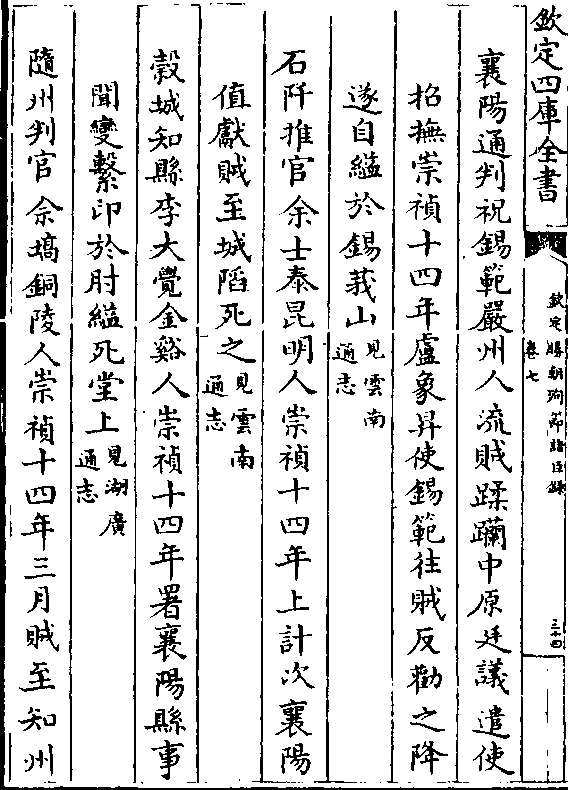 欽定四庫全書
欽定勝朝殉節諸臣録
卷七
三十四
襄陽通判祝錫範嚴州人流賊蹂躪中原廷議遣使
招撫崇禎十四年盧象昇使錫範往賊反勸之降
遂自縊於錫莪山見雲南通志
石阡推官余士泰昆明人崇禎十四年上計次襄陽
值獻賊至城䧟死之見雲南通志
榖城知縣李大覺金谿人崇禎十四年署襄陽縣事
聞變繫印於肘縊死堂上見湖廣通志
隨州判官佘塙銅陵人崇禎十四年三月賊至知州